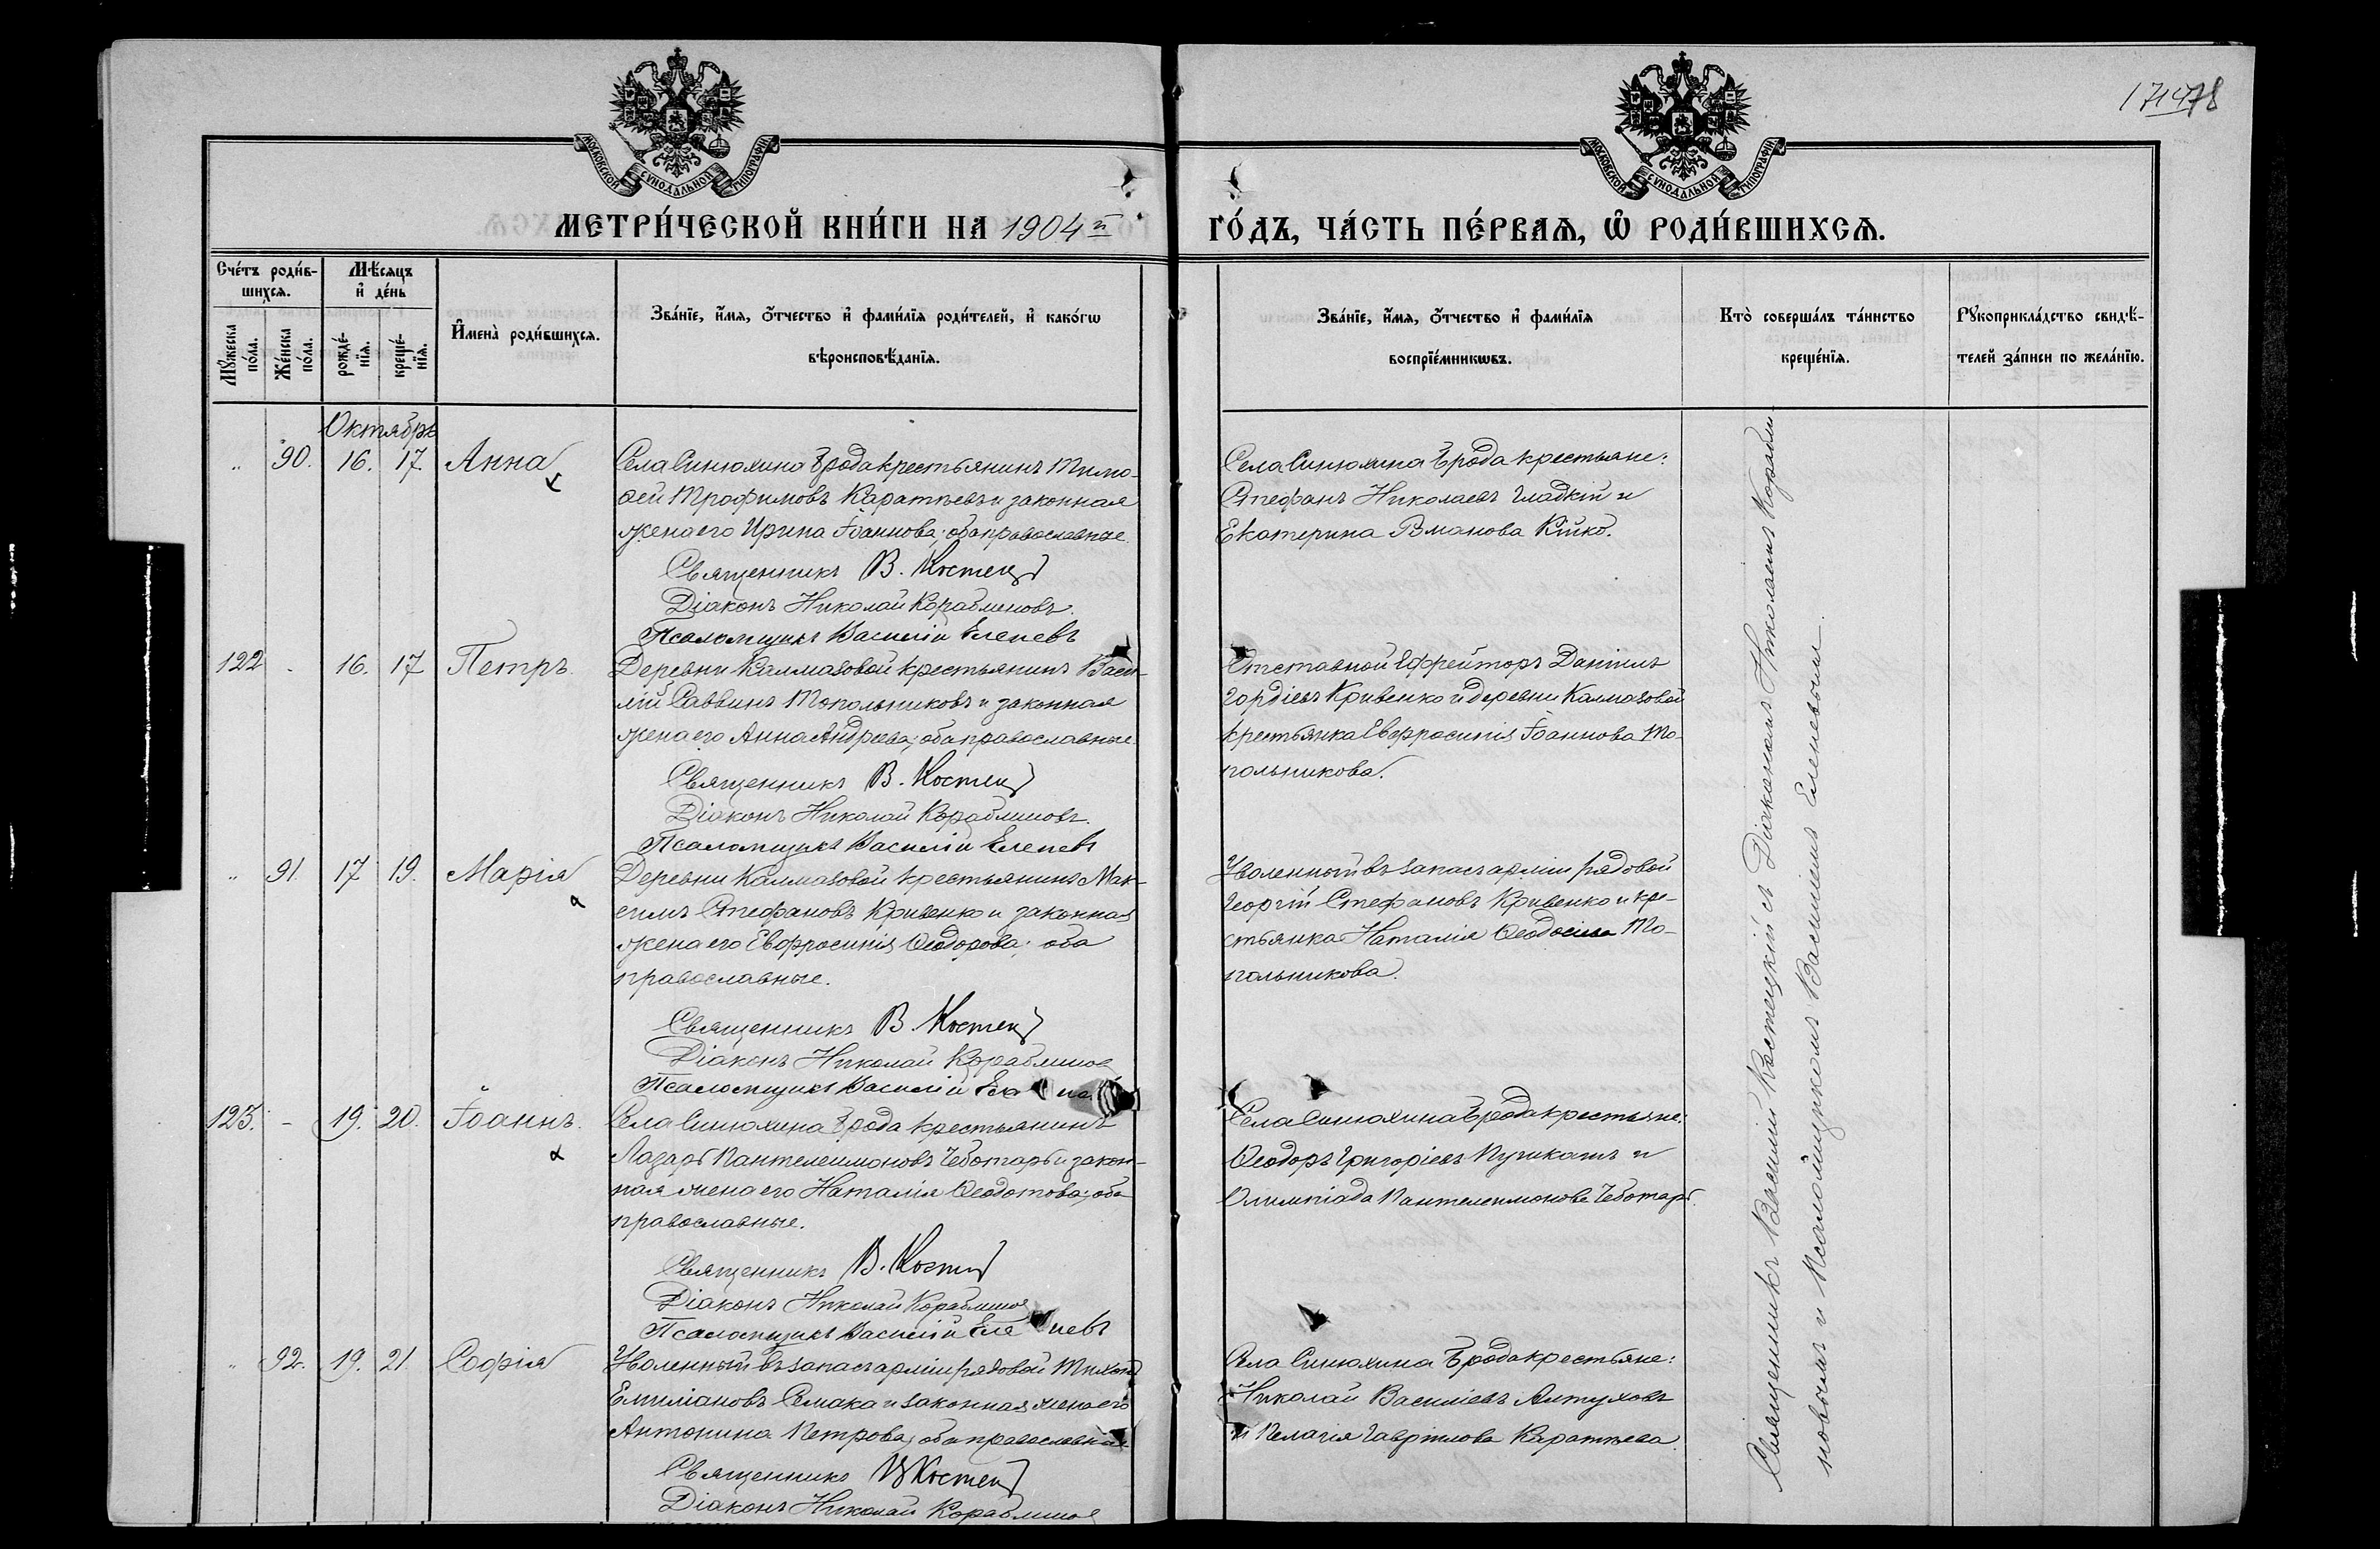 171478
МОСКОВСКОЙ СѴНОДАЛЬНОЙ ТИПОГРАФІИ
МОСКОВСКОЙ СѴНОДАЛЬНОЙ ТИПОГРАФІИ
МЕТРИ́ЧЕСКОЙ КНИ́ГИ НА 1904й
ГО́ДЪ, ЧА́СТЬ ПЕ́РВАѦ, Ѡ҆ РОДИ́ВШИХСѦ.
Сче́тъ роди́в-
шихсѧ.
Мѣ́сѧцъ
и҆ де́нь
Мꙋ́жеска
по́ла.
Же́нска
по́ла.
рожде́-
нїѧ.
креще́-
нїѧ.
И҆мена̀ роди́вшихсѧ.
Зва́нїе, и҆́мѧ, ѻ҆́тчество и҆ фами́лїѧ роди́телей, и҆ како́гѡ
вѣроисповѣ́данїѧ.
Зва́нїе, и҆́мѧ, ѻ҆́тчество и҆ фами́лїѧ
воспрїе́мникѡвъ.
Кто̀ соверша́лъ та́инство
креще́нїѧ.
Рꙋкоприкла́дство свидѣ́-
телей за́писи по жела́нїю.
Октябрь
" 90. 16. 17. Анна
Села Синюхина Брода крестьянинъ Тимо-
ѳей Трофимовъ Каратѣевъ и законная
жена его Ирина Іоаннова; оба православные.
Священникъ В. Костец
Діаконъ Николай Кораблиновъ.
Псаломщикъ Василій Еленевъ
Села Синюхина Брода крестьяне:
Стефанъ Николаевъ Гладкій и
Екатерина Романова Кійко.
122 - 16. 17 Петръ.
Деревни Калмазовой крестьянинъ Васи-
лій Саввинъ Топольниковъ и законная
жена его Анна Андреева; оба православные.
Священникъ В. Костец
Діаконъ Николай Кораблиновъ.
Псаломщикъ Василій Еленевъ
Отставной Ефрейторъ Даніилъ
Гордіевъ Кривенко и деревни Калмазовой
крестьянка Евфросинія Іоаннова То-
польникова.
" 91. 17 19. Марія
Деревни Калмазовой крестьянинъ Мак-
симъ Стефановъ Кривенко и законная
жена его Евфросинія Ѳеодорова; оба
православные.
Священникъ В. Костец
Діаконъ Николай Кораблинов
Псаломщикъ Василій
Уволенный въ запасъ арміи рядовой
Георгій Стефановъ Кривенко и кре-
стьянка Наталія Ѳеодосіева То-
польникова.
123. - 19. 20. Іоаннъ.
Села Синюхина Брода крестьянинъ
Лазарь Пантелеимоновъ Чеботарь и закон-
ная жена его Наталія Ѳеодотова; оба
православные.
Священникъ В. Костец
Діаконъ Николай Кораблинов
Псаломщикъ Василій Еле невъ
Села Синюхина Брода крестьяне:
Ѳеодоръ Григоріевъ Пушкашъ и
Олимпіада Пантелеимонова Чеботарь.
" 92. 19. 21. Софія
Уволенный въ запасъ арміи рядовой Тихонъ
Емиліановъ Семака и законная жена его
Антонина Петрова; оба православные
Священникъ В Костец
Діаконъ Николай Кораблинов
Села Синюхина Брода крестьяне:
Николай Василіевъ Алтуховъ
и Пелагія Гавріилова Каратѣева.
Священникъ Василій Костецкій съ Діакономъ Николаемъ Корабли-
новымъ и Псаломщикомъ Василіемъ Еленевымъ.